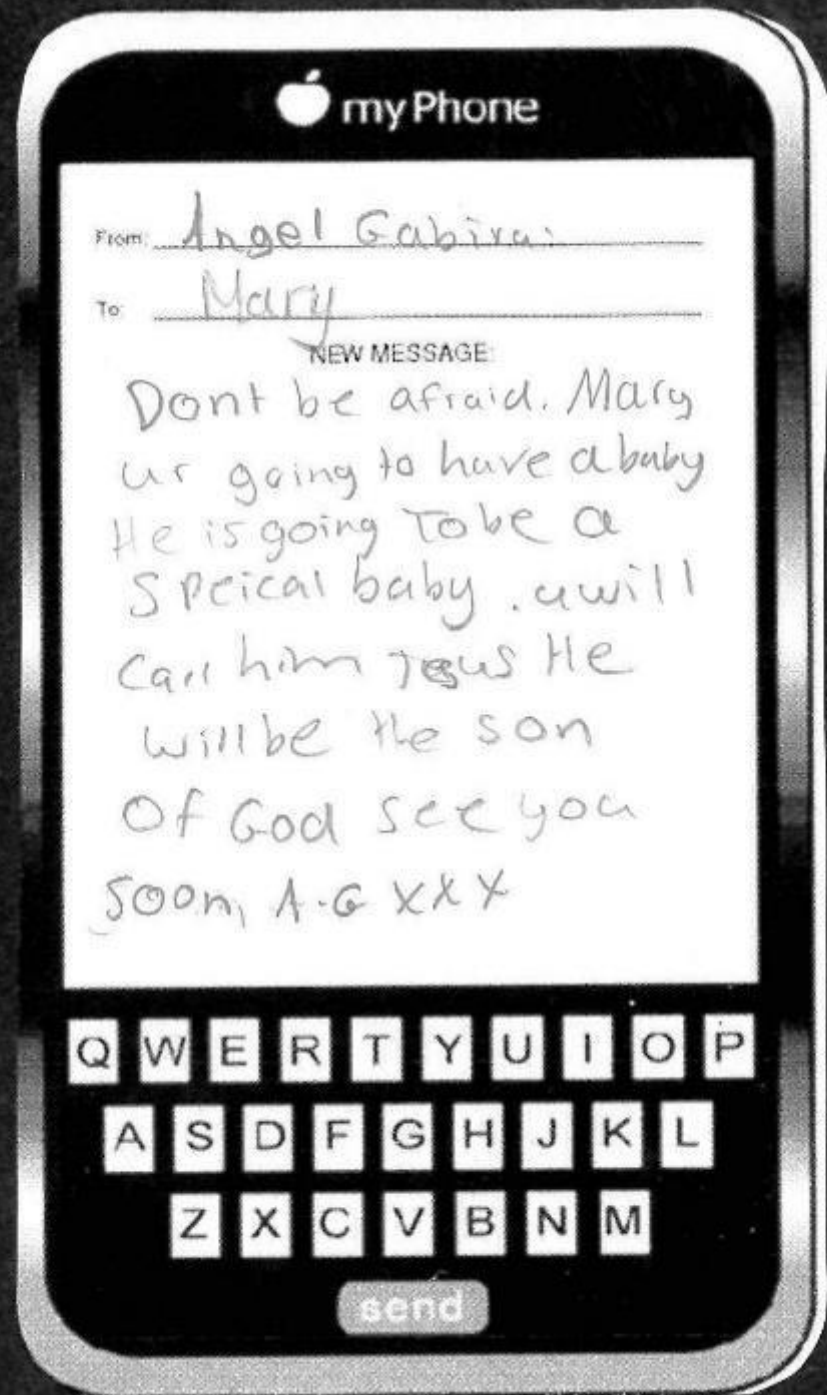 my Phone
From: Angel Gabirai
To: Mary
NEW MESSAGE:
Dont be afraid. Mary
ur going to have a baby
He is going To be a
Speical baby. u will
Call him Jesus He
will be the son
Of God see you
soon, A.G XXX
Q W E R T Y U I O P
A S D F G H J K L
Z X C V B N M
send